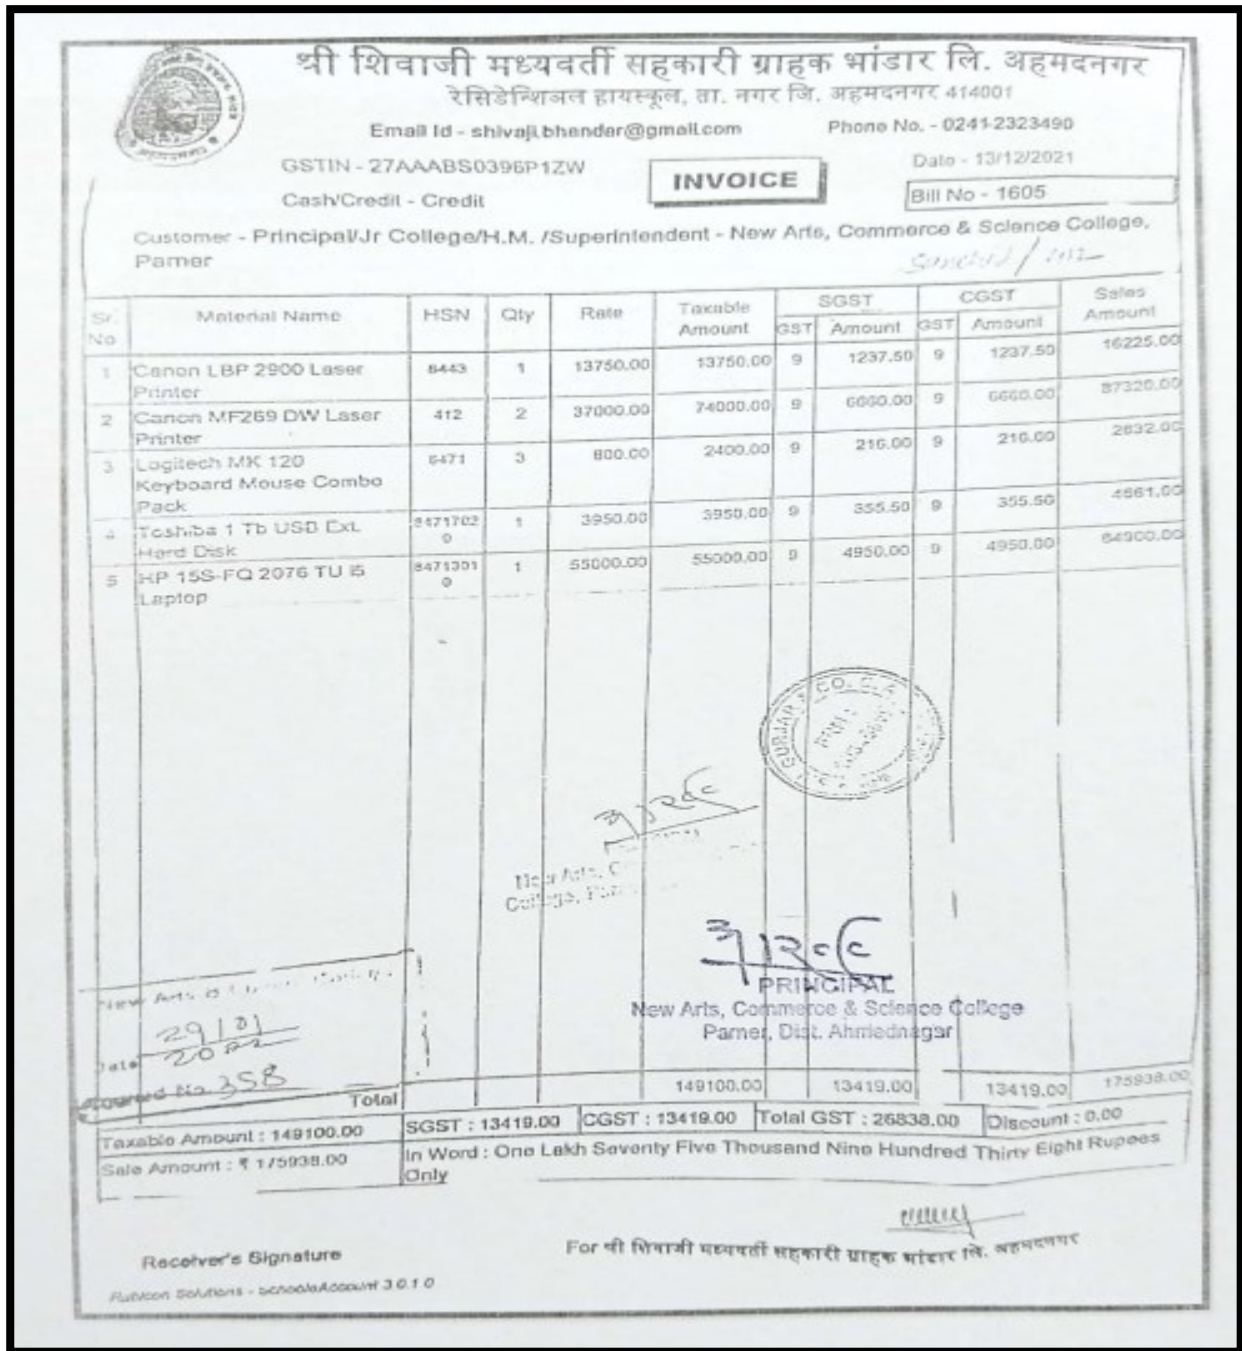 श्री शिवाजी मध्यवर्ती सहकारी ग्राहक भांडार लि. अहमदनगर
रेसिडेन्शिअल हायस्कूल, ता. नगर जि. अहमदनगर 414001
Email Id - shivaji.bhandar@gmail.com Phone No. - 0241-2323490
GSTIN - 27AAABS0396P1ZW INVOICE Date - 13/12/2021
Cash/Credit - Credit Bill No - 1605
Customer - Principal/Jr College/H.M. /Superintendent - New Arts, Commerce & Science College,
Parner
Sr. Material Name HSN Qty Rate Taxable SGST CGST Sales
No Amount GST Amount GST Amount Amount
1 Canon LBP 2900 Laser 8443 1 13750.00 13750.00 9 1237.50 9 1237.50 16225.00
Printer
2 Canon MF269 DW Laser 412 2 37000.00 74000.00 9 6660.00 9 6660.00 87320.00
Printer
3 Logitech MK 120 8471 3 800.00 2400.00 9 216.00 9 216.00 2832.00
Keyboard Mouse Combo
Pack
4 Toshiba 1 Tb USB Ext. 8471702 1 3950.00 3950.00 9 355.50 9 355.50 4661.00
Hard Disk 0
5 HP 15S-FQ 2076 TU i5 8471301 1 55000.00 55000.00 9 4950.00 9 4950.00 64900.00
Laptop 0
GURJAR & CO. C.A.
New Arts, C
College,
PRINCIPAL
New Arts, Commerce & Science College
Parner, Dist. Ahmednagar
New Arts
Date 29/01
2022
No 358
Total 149100.00 13419.00 13419.00 175938.00
Taxable Amount : 149100.00 SGST : 13419.00 CGST : 13419.00 Total GST : 26838.00 Discount : 0.00
Sale Amount : ₹ 175938.00 In Word : One Lakh Seventy Five Thousand Nine Hundred Thirty Eight Rupees
Only
Receiver's Signature For श्री शिवाजी मध्यवर्ती सहकारी ग्राहक भांडार लि. अहमदनगर
Rubicon Solutions - SchoolsAccount 3.0.1.0